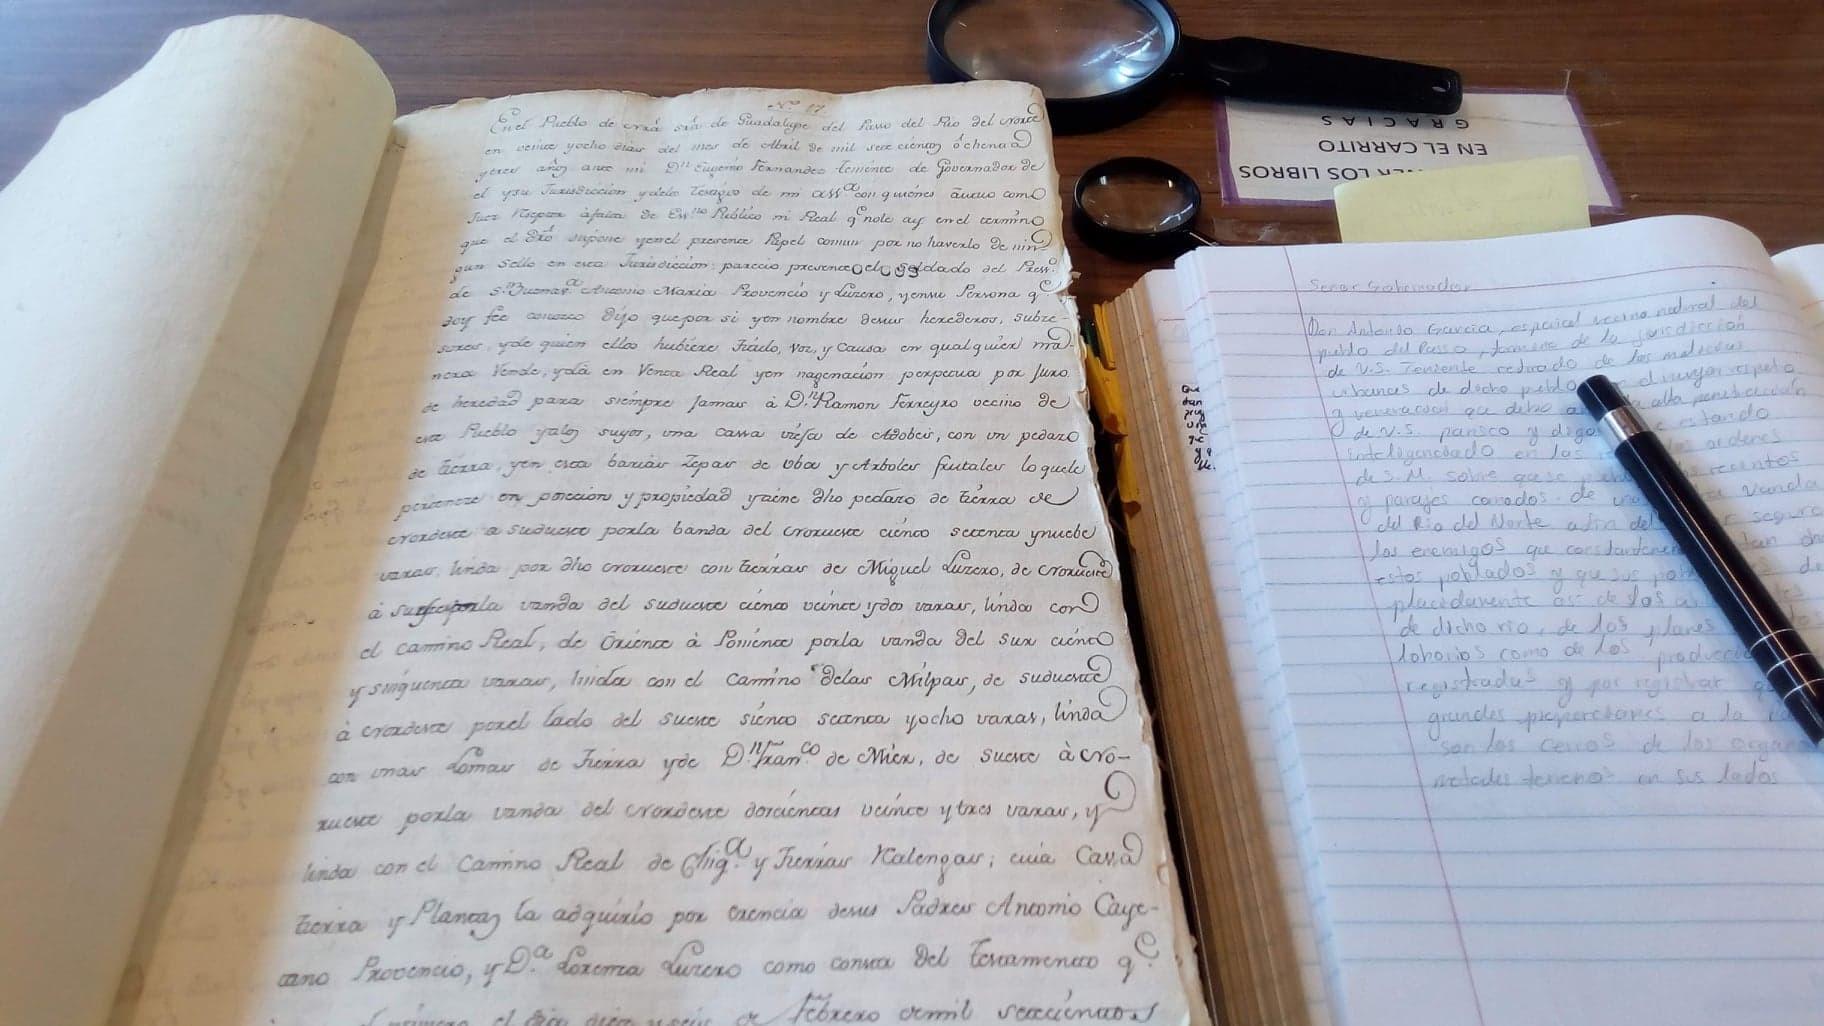 Nº. 17
En el Pueblo de Nrã Srã de Guadalupe del Passo del Rio del Norte
en veinte yocho dias del mes de Abril de mil sete cientos ochenta
ytres años ante mi Dn Eugenio Fernandes teniente de Governador de
el ysu Jurisdiccion ydelos Testigos de mi assa con quienes áctuo como
Juez Rceptor áfalta de Essno Publico ni Real qe note ay en el termino
que el dro supone yenel presente Papel comun por no haverlo de nin
gun Sello en esta Jurisdiccion: parecio presente el soldado del Press.º
de Sn Buenaa Antonio Maria Provencio y Luzero, yensu Persona qe
doy fee conozco Dijo quepor si yen nombre desus herederos, subce-
sores, yde quien ellos hubiere titulo, voz, y Causa en qualquier ma-
nera Vende, ydá en Venta Real yen nagenacion perpetua por Juro
de heredad para siempre Jamas â Dn Ramon Ferreyro vecino de
este Pueblo yalos suyos, una cassa viefa de Adobes, con un pedazo
de tierra, yen esta barias Zepas de Uba y Arboles frutales lo quele
pertenece en posecion y propiedad ytiene dho pedazo de tierra de
Nordeste a sudueste porla banda del Norueste ciento setenta ynuebe
varas, linda por dho Norueste con tierras de Miguel Luzero, de Norueste
à su porla vanda del sudueste ciento veinte ydos varas, linda con
el camino Real, de Oriente à Poniente porla vanda del sur ciento
y sinquenta varas, linda con el Camino delas Milpas, de sudueste
à Nordeste porel lado del Sueste siento setenta yocho varas, linda
con unas Lomas de Tierra yde Dn Franco de Mier, de Sueste à No-
rueste porla vanda del Nordeste dorcientas veinte ytres varas, y
linda con el Camino Real de Chiga. y Tierras Realengas; cuia Cassa
tierra y Plantas la adquirio por erencia desus Padres Antonio Caye-
tano Provencio, y Da. Lorenza Luzero como consta del Testamento qe.
el primero el dia diez y seis de Febrero demil setecientos
GRACIAS
EN EL CARRITO
NER LOS LIBROS
Señor Gobernador
Don Antonio Garcia, español vecino natural del
pueblo del Passo, teniente de la jurisdiccion
de V.S. Teniente retirado de las milicias
urbanas de dicho pueblo el mayor respeto
y veneracion que debo a la alta penetracion
de V.S. paresco y digo estando
inteligenciado en las ordenes
de S.M. sobre que se recintos
y parajes comodos de una vanda
del Rio del Norte a fin del seguro
los enemigos que constantemen tan dh
estos poblados y que sus pob de
placidamente asi de los
de dicho rio, de los planes los
laborios como de los producci
registradas y por registrar q
grandes proporciones a la
son los cerros de los organ
metales terrenos en sus lados